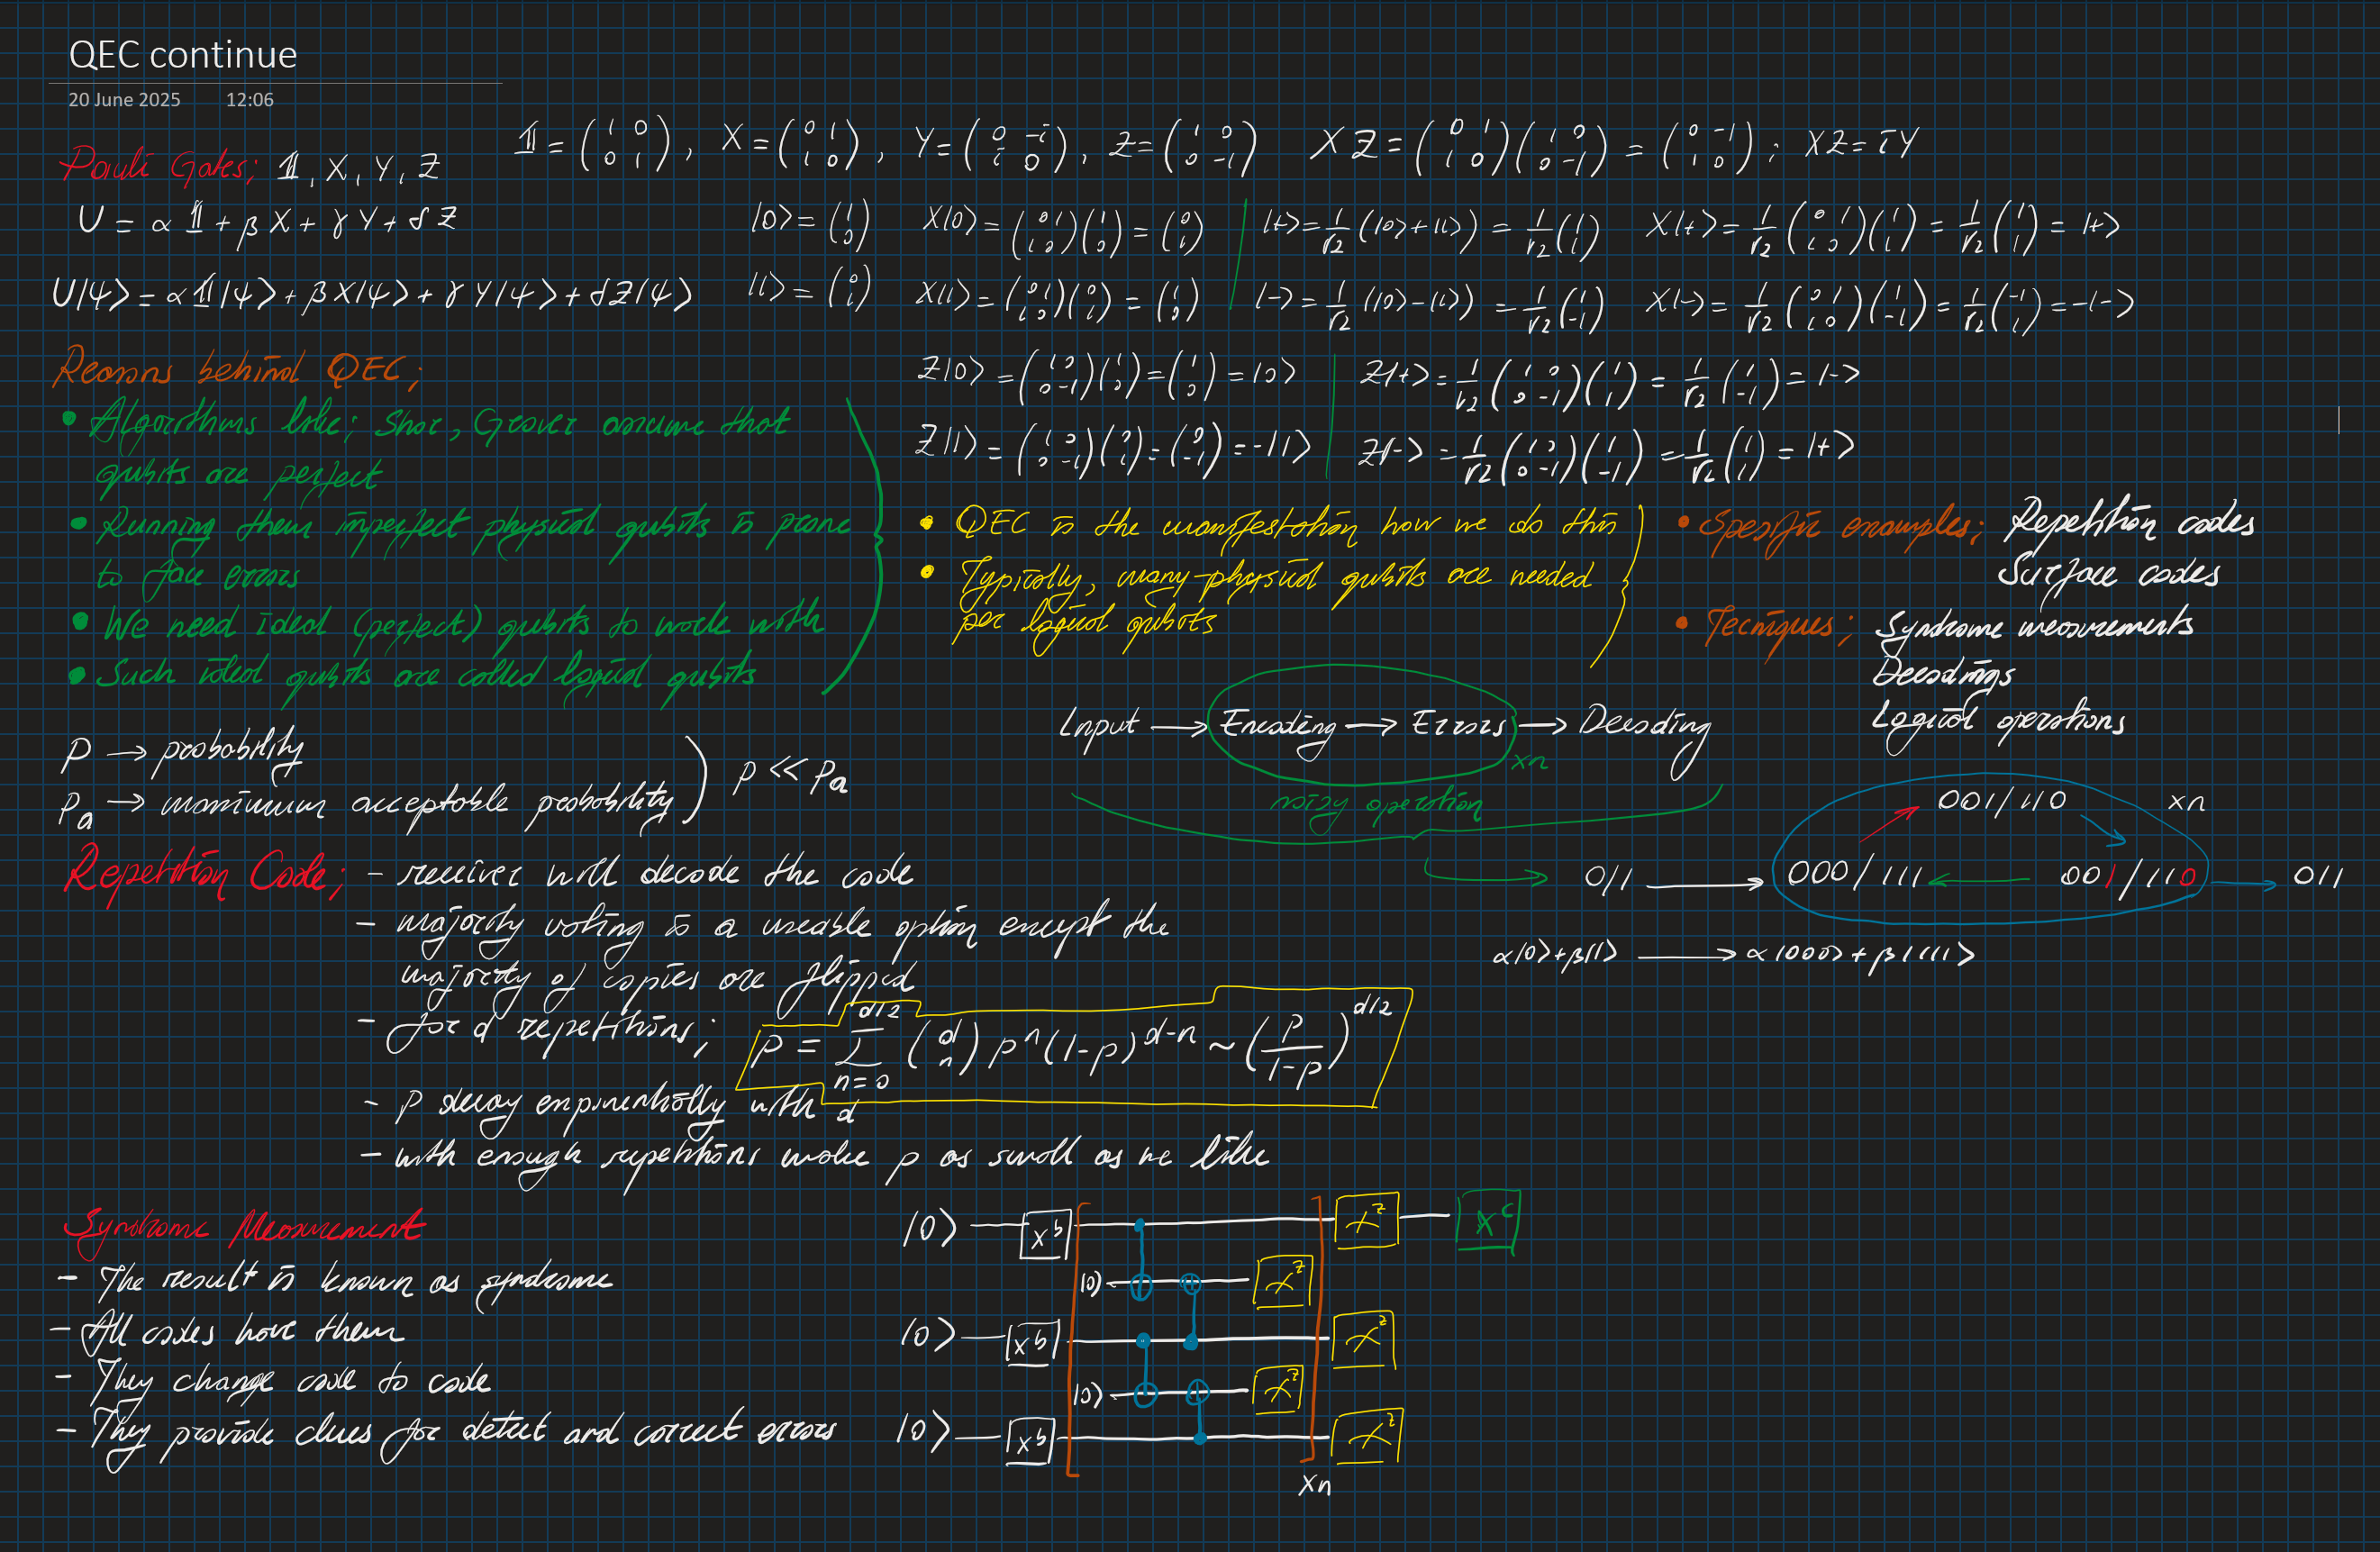 QEC continue
20 June 2025 12:06
Pauli Gates; 𝟙, X, Y, Z
𝟙 = (1 0; 0 1), X = (0 1; 1 0), Y = (0 -i; i 0), Z = (1 0; 0 -1) XZ = (0 1; 1 0)(1 0; 0 -1) = (0 -1; 1 0); XZ = iY
U = α𝟙 + βX + γY + δZ
|0> = (1; 0) X|0> = (0 1; 1 0)(1; 0) = (0; 1) |+> = 1/√2 (|0>+|1>) = 1/√2 (1; 1) X|+> = 1/√2 (0 1; 1 0)(1; 1) = 1/√2 (1; 1) = |+>
U|ψ> = α𝟙|ψ> + βX|ψ> + γY|ψ> + δZ|ψ>
|1> = (0; 1) X|1> = (0 1; 1 0)(0; 1) = (1; 0) |-> = 1/√2 (|0>-|1>) = 1/√2 (1; -1) X|-> = 1/√2 (0 1; 1 0)(1; -1) = 1/√2 (-1; 1) = -|->
Z|0> = (1 0; 0 -1)(1; 0) = (1; 0) = |0> Z|+> = 1/√2 (1 0; 0 -1)(1; 1) = 1/√2 (1; -1) = |->
Z|1> = (1 0; 0 -1)(0; 1) = (0; -1) = -|1> Z|-> = 1/√2 (1 0; 0 -1)(1; -1) = 1/√2 (1; 1) = |+>
Reasons behind QEC;
• Algorithms like; Shor, Grover assume that
qubits are perfect
• Running them imperfect physical qubits is prone
to face errors
• We need ideal (perfect) qubits to work with
• Such ideal qubits are called logical qubits
• QEC is the manifestation how we do this
• Typically, many-physical qubits are needed
per logical qubits
• Spesific examples; Repetition codes
Surface codes
• Tecniques; Syndrome measurements
Decodings
Logical operations
Input → Encoding → Errors → Decoding
xn
noisy operation
P → probability
Pa → maximum acceptable probability
P << Pa
001/110 xn
0/1 000/111 001/110 0/1
α|0>+β|1> → α|000>+β|111>
Repetition Code; - receiver will decode the code
- majority voting is a useable option except the
majority of copies are flipped
- for d repetitions; P = Σ n=0 d/2 (d n) p^n (1-p)^d-n ~ (p/1-p)^d/2
- P decay exponentially with d
- with enough repetitions make p as small as we like
Syndrome Measurement
- The result is known as syndrome
- All codes have them
- They change code to code
- They provide clues for detect and correct errors
|0> X^b z X^c
|0> z
|0> X^b z
|0> z
|0> X^b z
xn